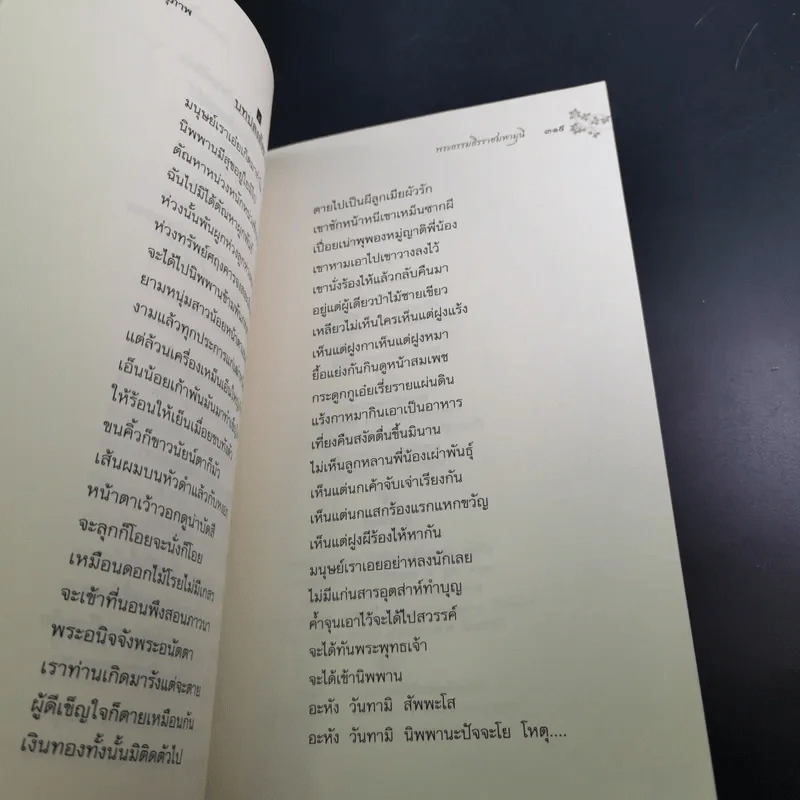 ภาพ
มนุษย์เราเอ๋ย
นิพพานมีสุข
ตัณหาหน่วงหนัก
ฉันไปมิได้ตัณหา
ห่วงนั้นพันผูก
ห่วงทรัพย์ศฤงคาร
จะได้ไปนิพพาน
ยามหนุ่มสาวน้อย
งามแล้วทุกประการ
แต่ล้วนเครื่องเหม็น
เอ็นน้อยเก้าพันมันมา
ให้ร้อนให้เย็นเมื่อยขบ
ขนคิ้วก็ขาวนัยน์ตาก็มัว
เส้นผมบนหัวดำแล้ว
หน้าตาเว้าวอกดูน่าบัดสี
จะลุกก็โอยจะนั่งก็โอย
เหมือนดอกไม้โรยไม่มีเกสร
จะเข้าที่นอนพึงสอนภาวนา
พระอนิจจังพระอนัตตา
เราท่านเกิดมารังแต่จะตาย
ผู้ดีเข็ญใจก็ตายเหมือนกัน
เงินทองทั้งนั้นมิติดตัวไป
พระธรรมธีรราชมหามุนี ๓๑๕
ตายไปเป็นผีลูกเมียผัวรัก
เขาชักหน้าหนีเขาเหม็นซากผี
เปื่อยเน่าพุพองหมู่ญาติพี่น้อง
เขาหามเอาไปเขาวางลงไว้
เขานั่งร้องไห้แล้วกลับคืนมา
อยู่แต่ผู้เดียวป่าไม้ชายเขียว
เหลียวไม่เห็นใครเห็นแต่ฝูงแร้ง
เห็นแต่ฝูงกาเห็นแต่ฝูงหมา
ยื้อแย่งกันกินดูหน้าสมเพช
กระดูกกูเอ๋ยเรี่ยรายแผ่นดิน
แร้งกาหมากินเอาเป็นอาหาร
เที่ยงคืนสงัดตื่นขึ้นมินาน
ไม่เห็นลูกหลานพี่น้องเผ่าพันธุ์
เห็นแต่นกเค้าจับเจ่าเรียงกัน
เห็นแต่นกแสกร้องแรกแหกขวัญ
เห็นแต่ฝูงผีร้องไห้หากัน
มนุษย์เราเอยอย่าหลงนักเลย
ไม่มีแก่นสารอุตส่าห์ทำบุญ
ค้ำจุนเอาไว้จะได้ไปสวรรค์
จะได้ทันพระพุทธเจ้า
จะได้เข้านิพพาน
อะหัง วันทามิ สัพพะโส
อะหัง วันทามิ นิพพานะปัจจะโย โหตุ....